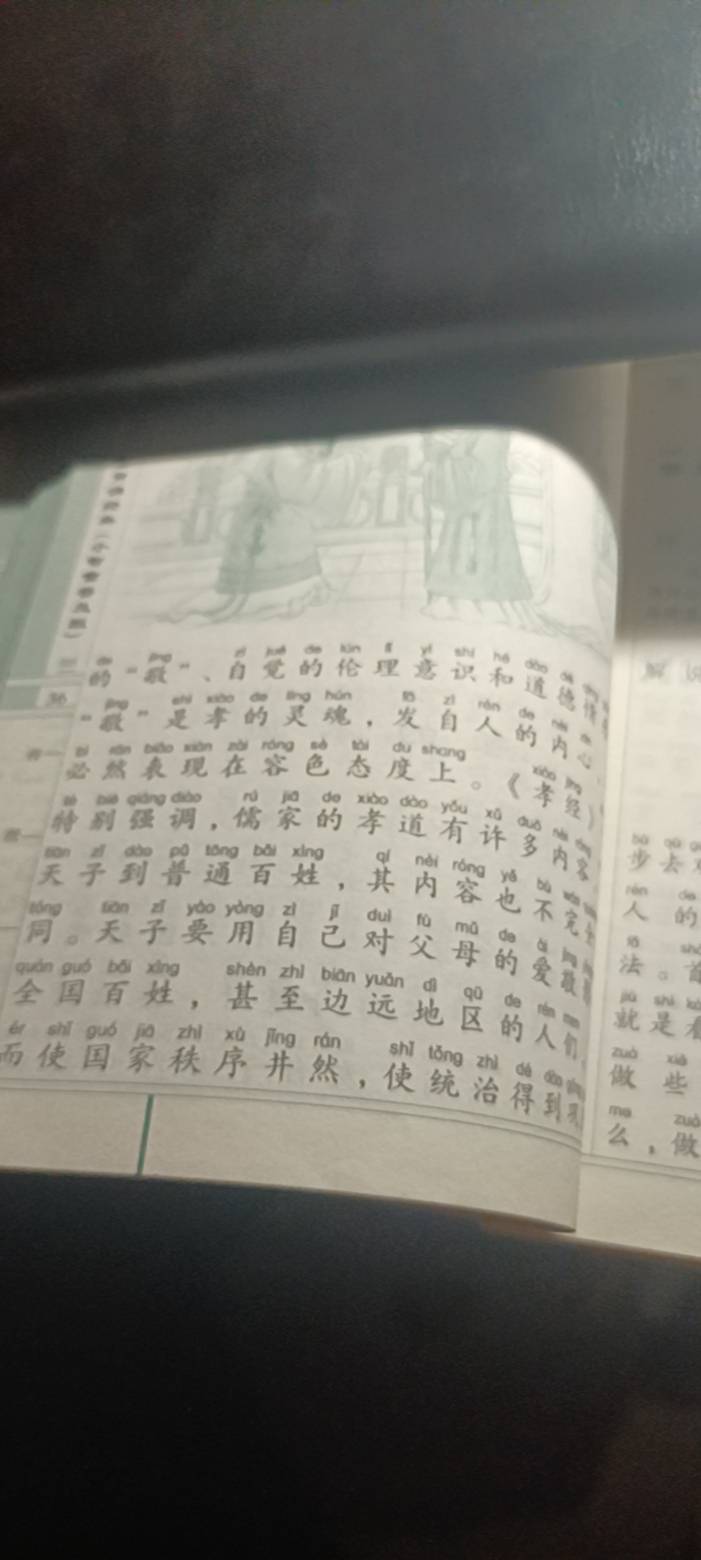 de jìng zì jué de lún lǐ yì shí hé dào dé
的“敬”、自觉的伦理意识和道德情
jìng shì xiào de líng hún fā zì rén de nèi
“敬”是孝的灵魂，发自人的内心，
bì rán biǎo xiàn zài róng sè tài dù shang xiào jīng
必然表现在容色态度上。《孝经》
tè bié qiáng diào rú jiā de xiào dào yǒu xǔ duō nèi róng
特别强调，儒家的孝道有许多内容
tiān zǐ dào pǔ tōng bǎi xìng qí nèi róng yě bù wán
天子到普通百姓，其内容也不完全
tóng tiān zǐ yào yòng zì jǐ duì fù mǔ de ài jìng
同。天子要用自己对父母的爱敬
quán guó bǎi xìng shèn zhì biān yuǎn dì qū de rén men
全国百姓，甚至边远地区的人们
ér shǐ guó jiā zhì xù jǐng rán shǐ tǒng zhì dé dào
而使国家秩序井然，使统治得到
36
解说
bù qù
步去
rén de
人的
法。首
jiù shì
就是看
zuò xiē
做些
me zuò
么，做